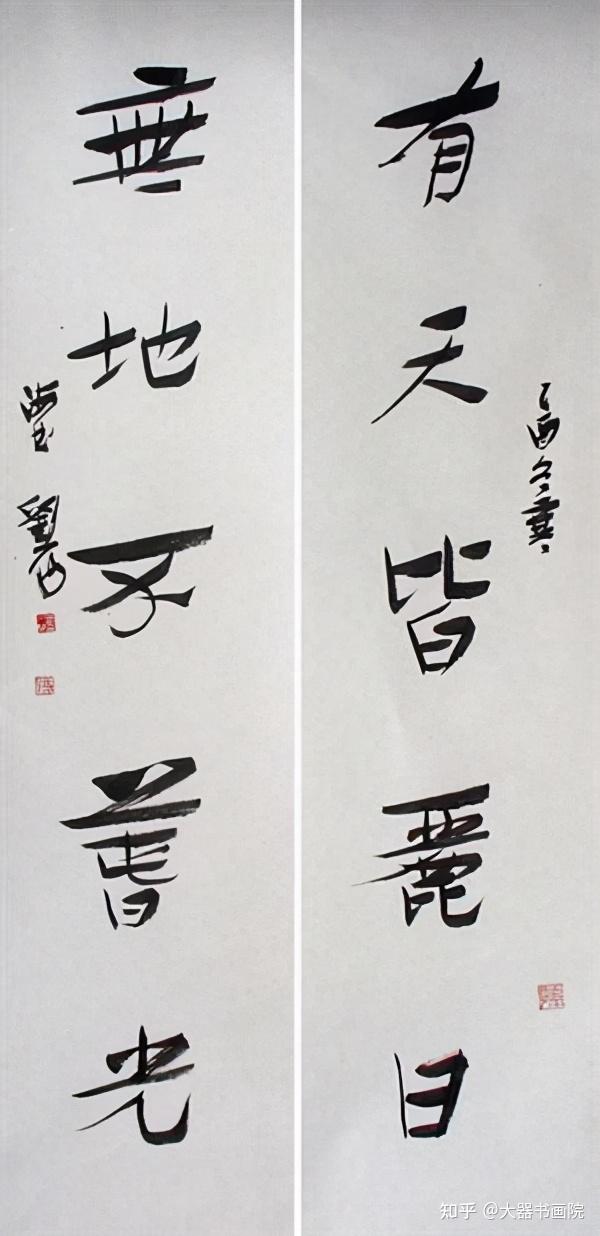 乙酉冬
有天皆麗日
無地不萅光
劉
知乎 @大器书画院